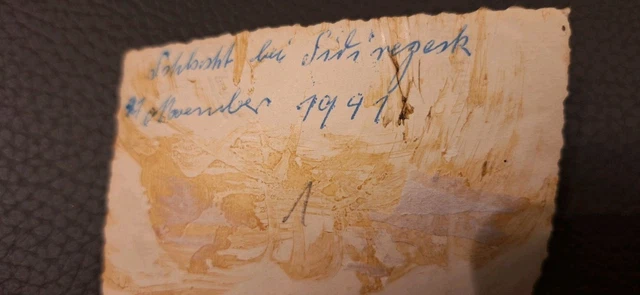 Schlacht bei Sidi rezegk
21 November 1941
1